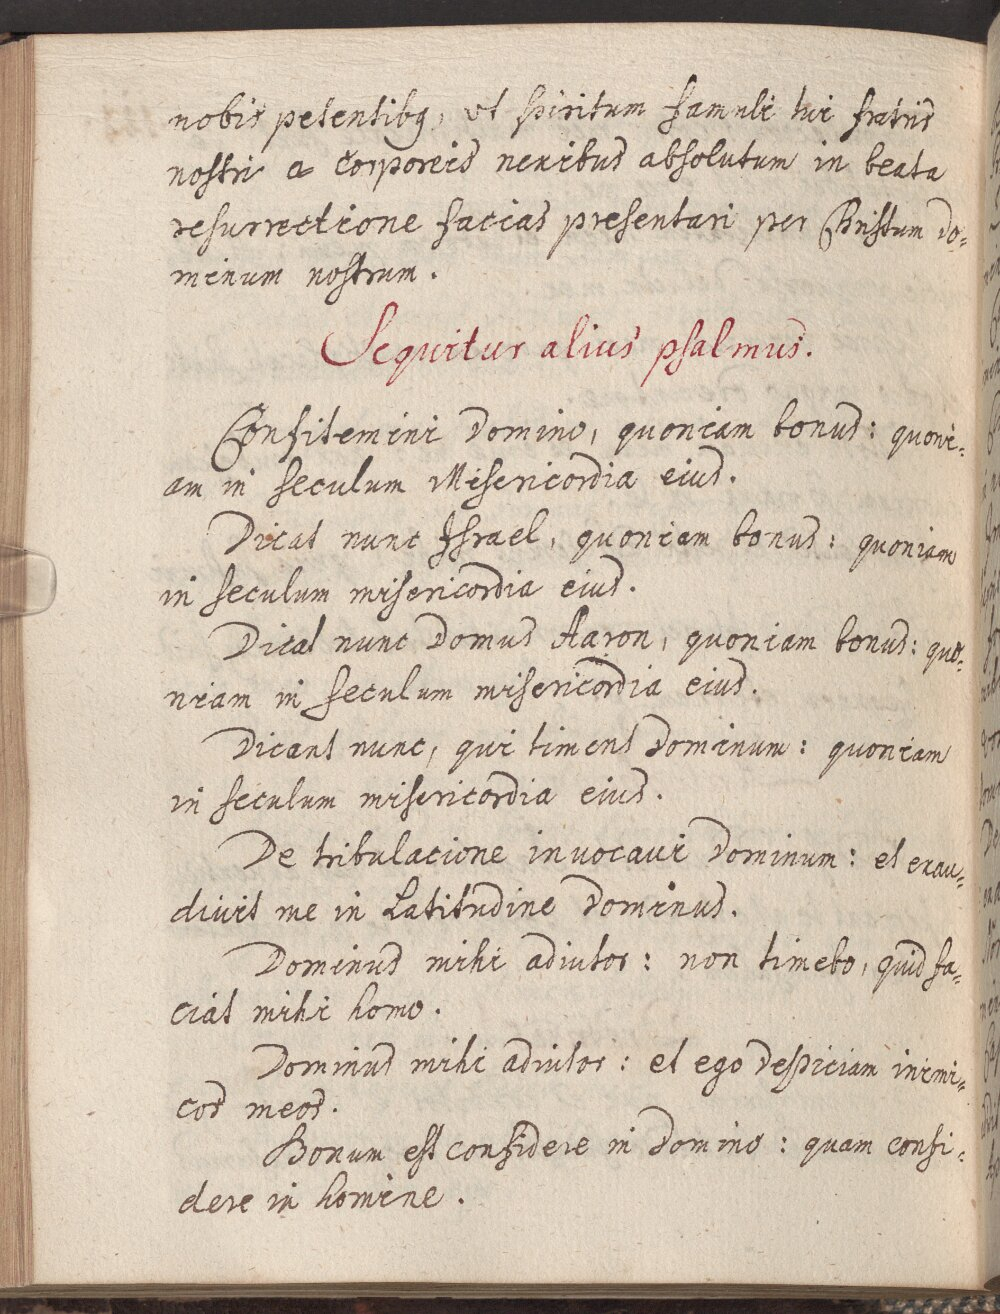 nobis petentibq, ut spiritum famuli tui fratris
nostri a corporeis nexibus absolutum in beata
resurrectione facias presentari per Christum do-
minum nostrum.
Sequitur alius psalmus.
Confitemini Domino, quoniam bonus: quoni-
am in seculum Misericordia eius.
Dicat nunc Israel, quoniam bonus: quoniam
in seculum misericordia eius.
Dicat nunc Domus Aaron, quoniam bonus: quo-
niam in seculum misericordia eius.
Dicant nunc, qui timent Dominum: quoniam
in seculum misericordia eius.
De tribulacione invocavi Dominum: et exau-
divit me in Latitudine Dominus.
Dominus mihi adiutor: non timebo, quid fa-
ciat mihi homo.
Dominus mihi adiutor: et ego despiciam inimi-
cos meos.
Bonum est confidere in Domino: quam confi-
dere in homine.